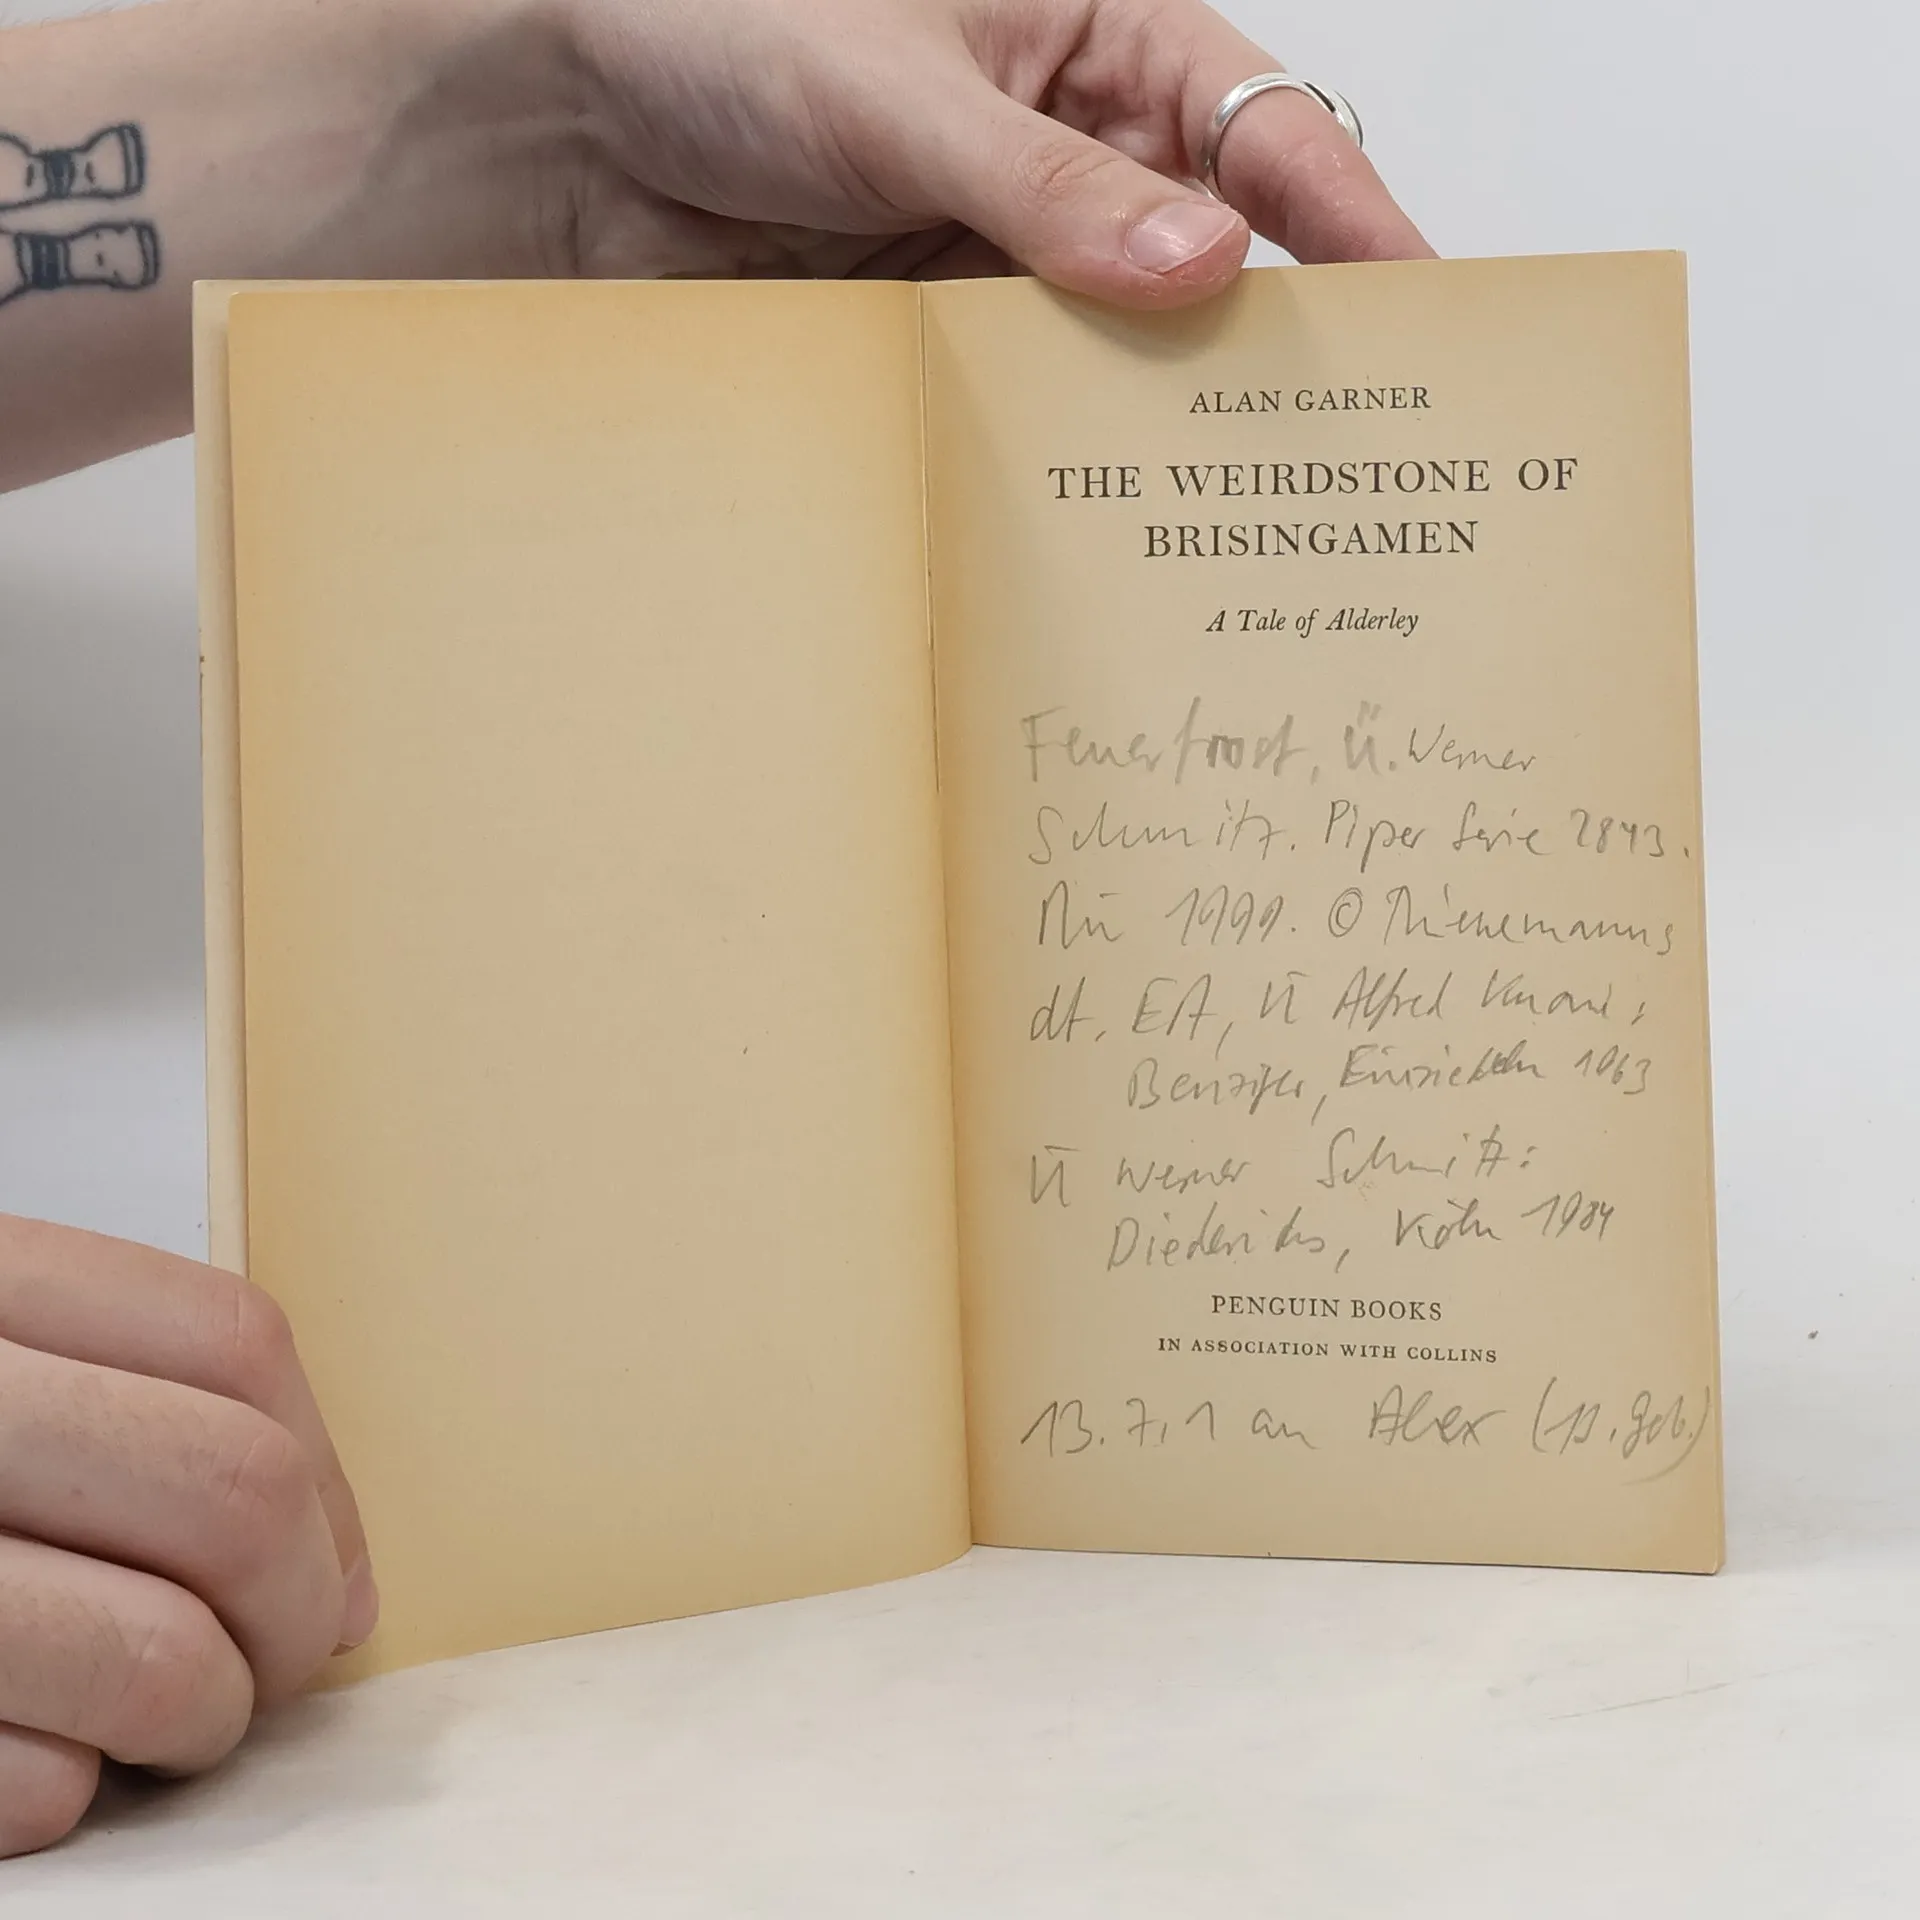 ALAN GARNER
THE WEIRDSTONE OF
BRISINGAMEN
A Tale of Alderley
Feuerfrost, Ü. Werner
Schmitz. Piper Serie 2843.
Mü 1999. © Thienemanns
dt. EA, Ü Alfred
Benziger, Einsiedeln 1963
Ü Werner Schmitz:
Diederichs, Köln 1984
PENGUIN BOOKS
IN ASSOCIATION WITH COLLINS
13.7.1 an Alex